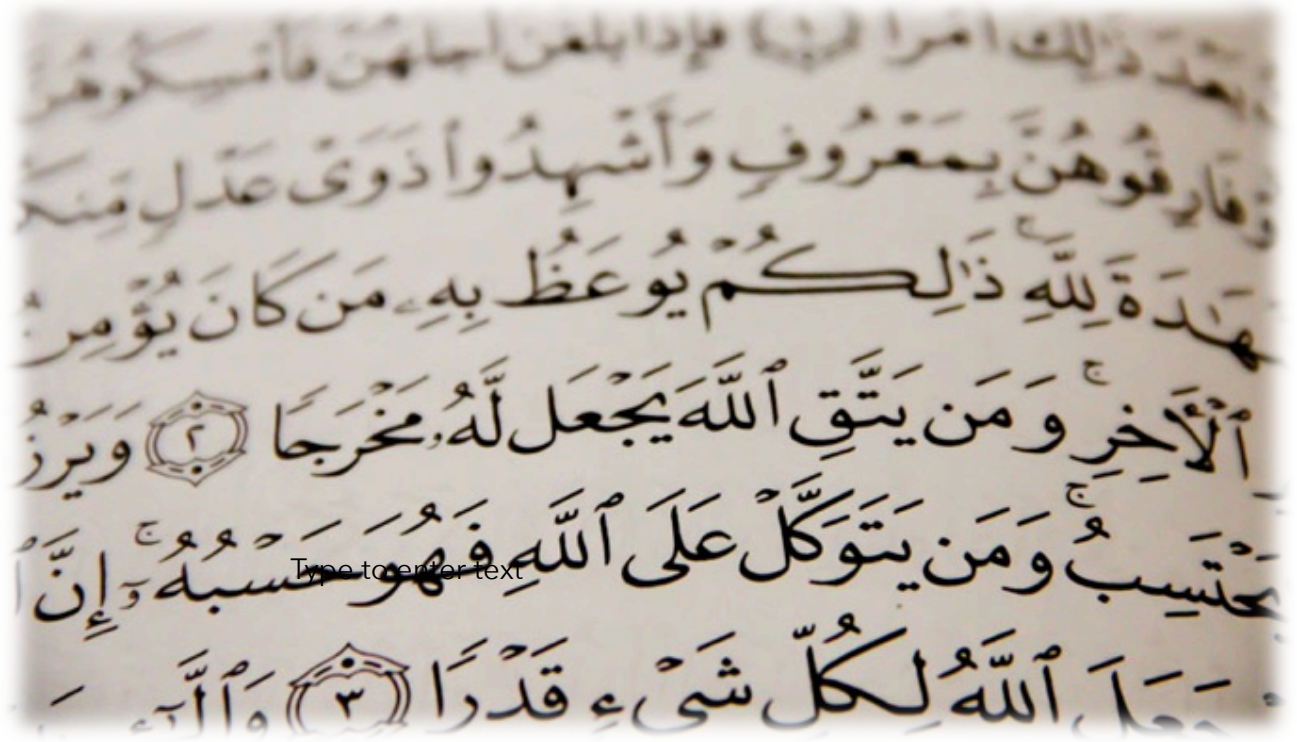 بَعْدَ ذَٰلِكَ أَمْرًا ١ فَإِذَا بَلَغْنَ أَجَلَهُنَّ فَأَمْسِكُوهُنَّ
فَارِقُوهُنَّ بِمَعْرُوفٍ وَأَشْهِدُوا۟ ذَوَىْ عَدْلٍ
لِلَّهِ ۚ ذَٰلِكُمْ يُوعَظُ بِهِۦ مَن كَانَ يُؤْمِنُ
ٱلْءَاخِرِ ۚ وَمَن يَتَّقِ ٱللَّهَ يَجْعَل لَّهُۥ مَخْرَجًا ٢
يَحْتَسِبُ ۚ وَمَن يَتَوَكَّلْ عَلَى ٱللَّهِ فَهُوَ حَسْبُهُۥٓ ۚ إِنَّ
Type to enter text
جَعَلَ ٱللَّهُ لِكُلِّ شَىْءٍ قَدْرًا ٣